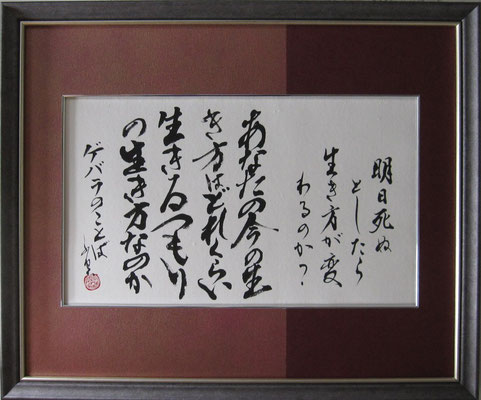 明日死ぬ
としたら
生き方が変
わるのか？
あなたの今の生
き方はどれくらい
生きるつもり
の生き方なのか
ゲバラのことば